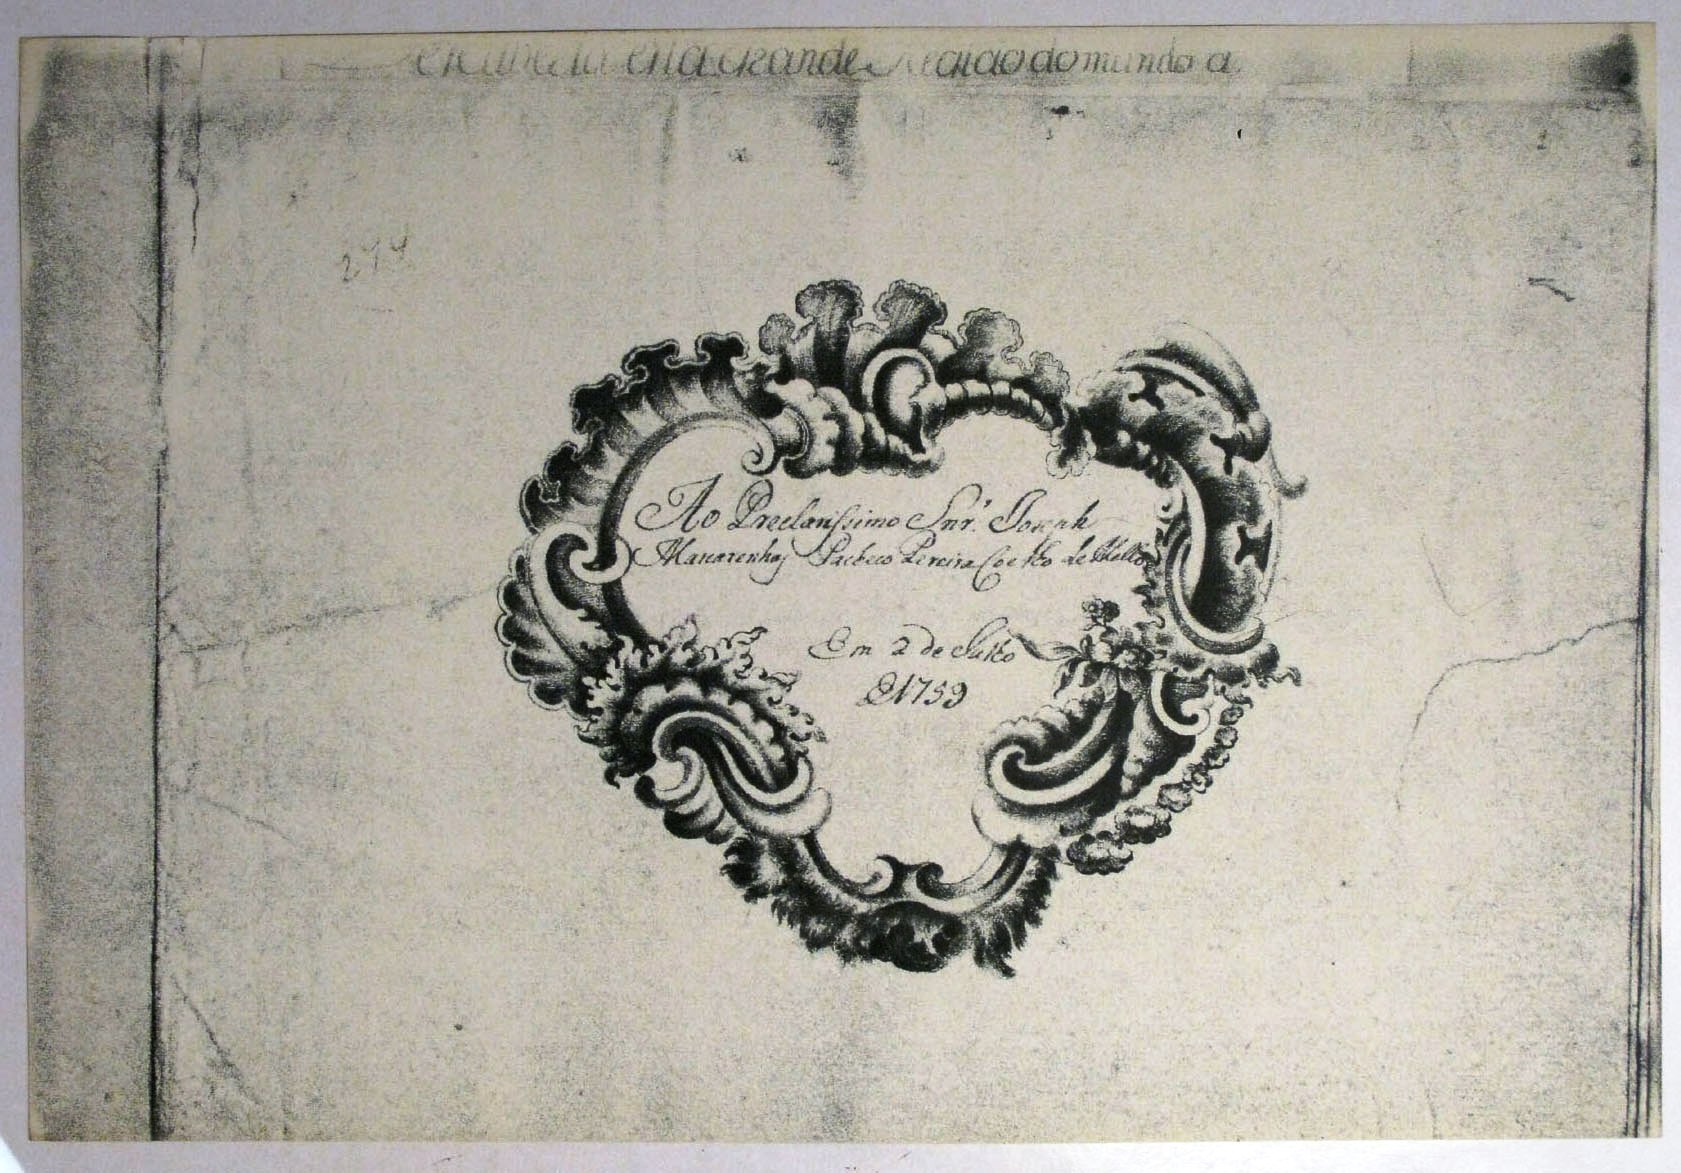 grande Região do mundo a
244
Ao Preclarissimo Snr. Joseph
Mascarenhas Pacheco Pereira Coelho de Mello
Em 2 de Julho
D 1759